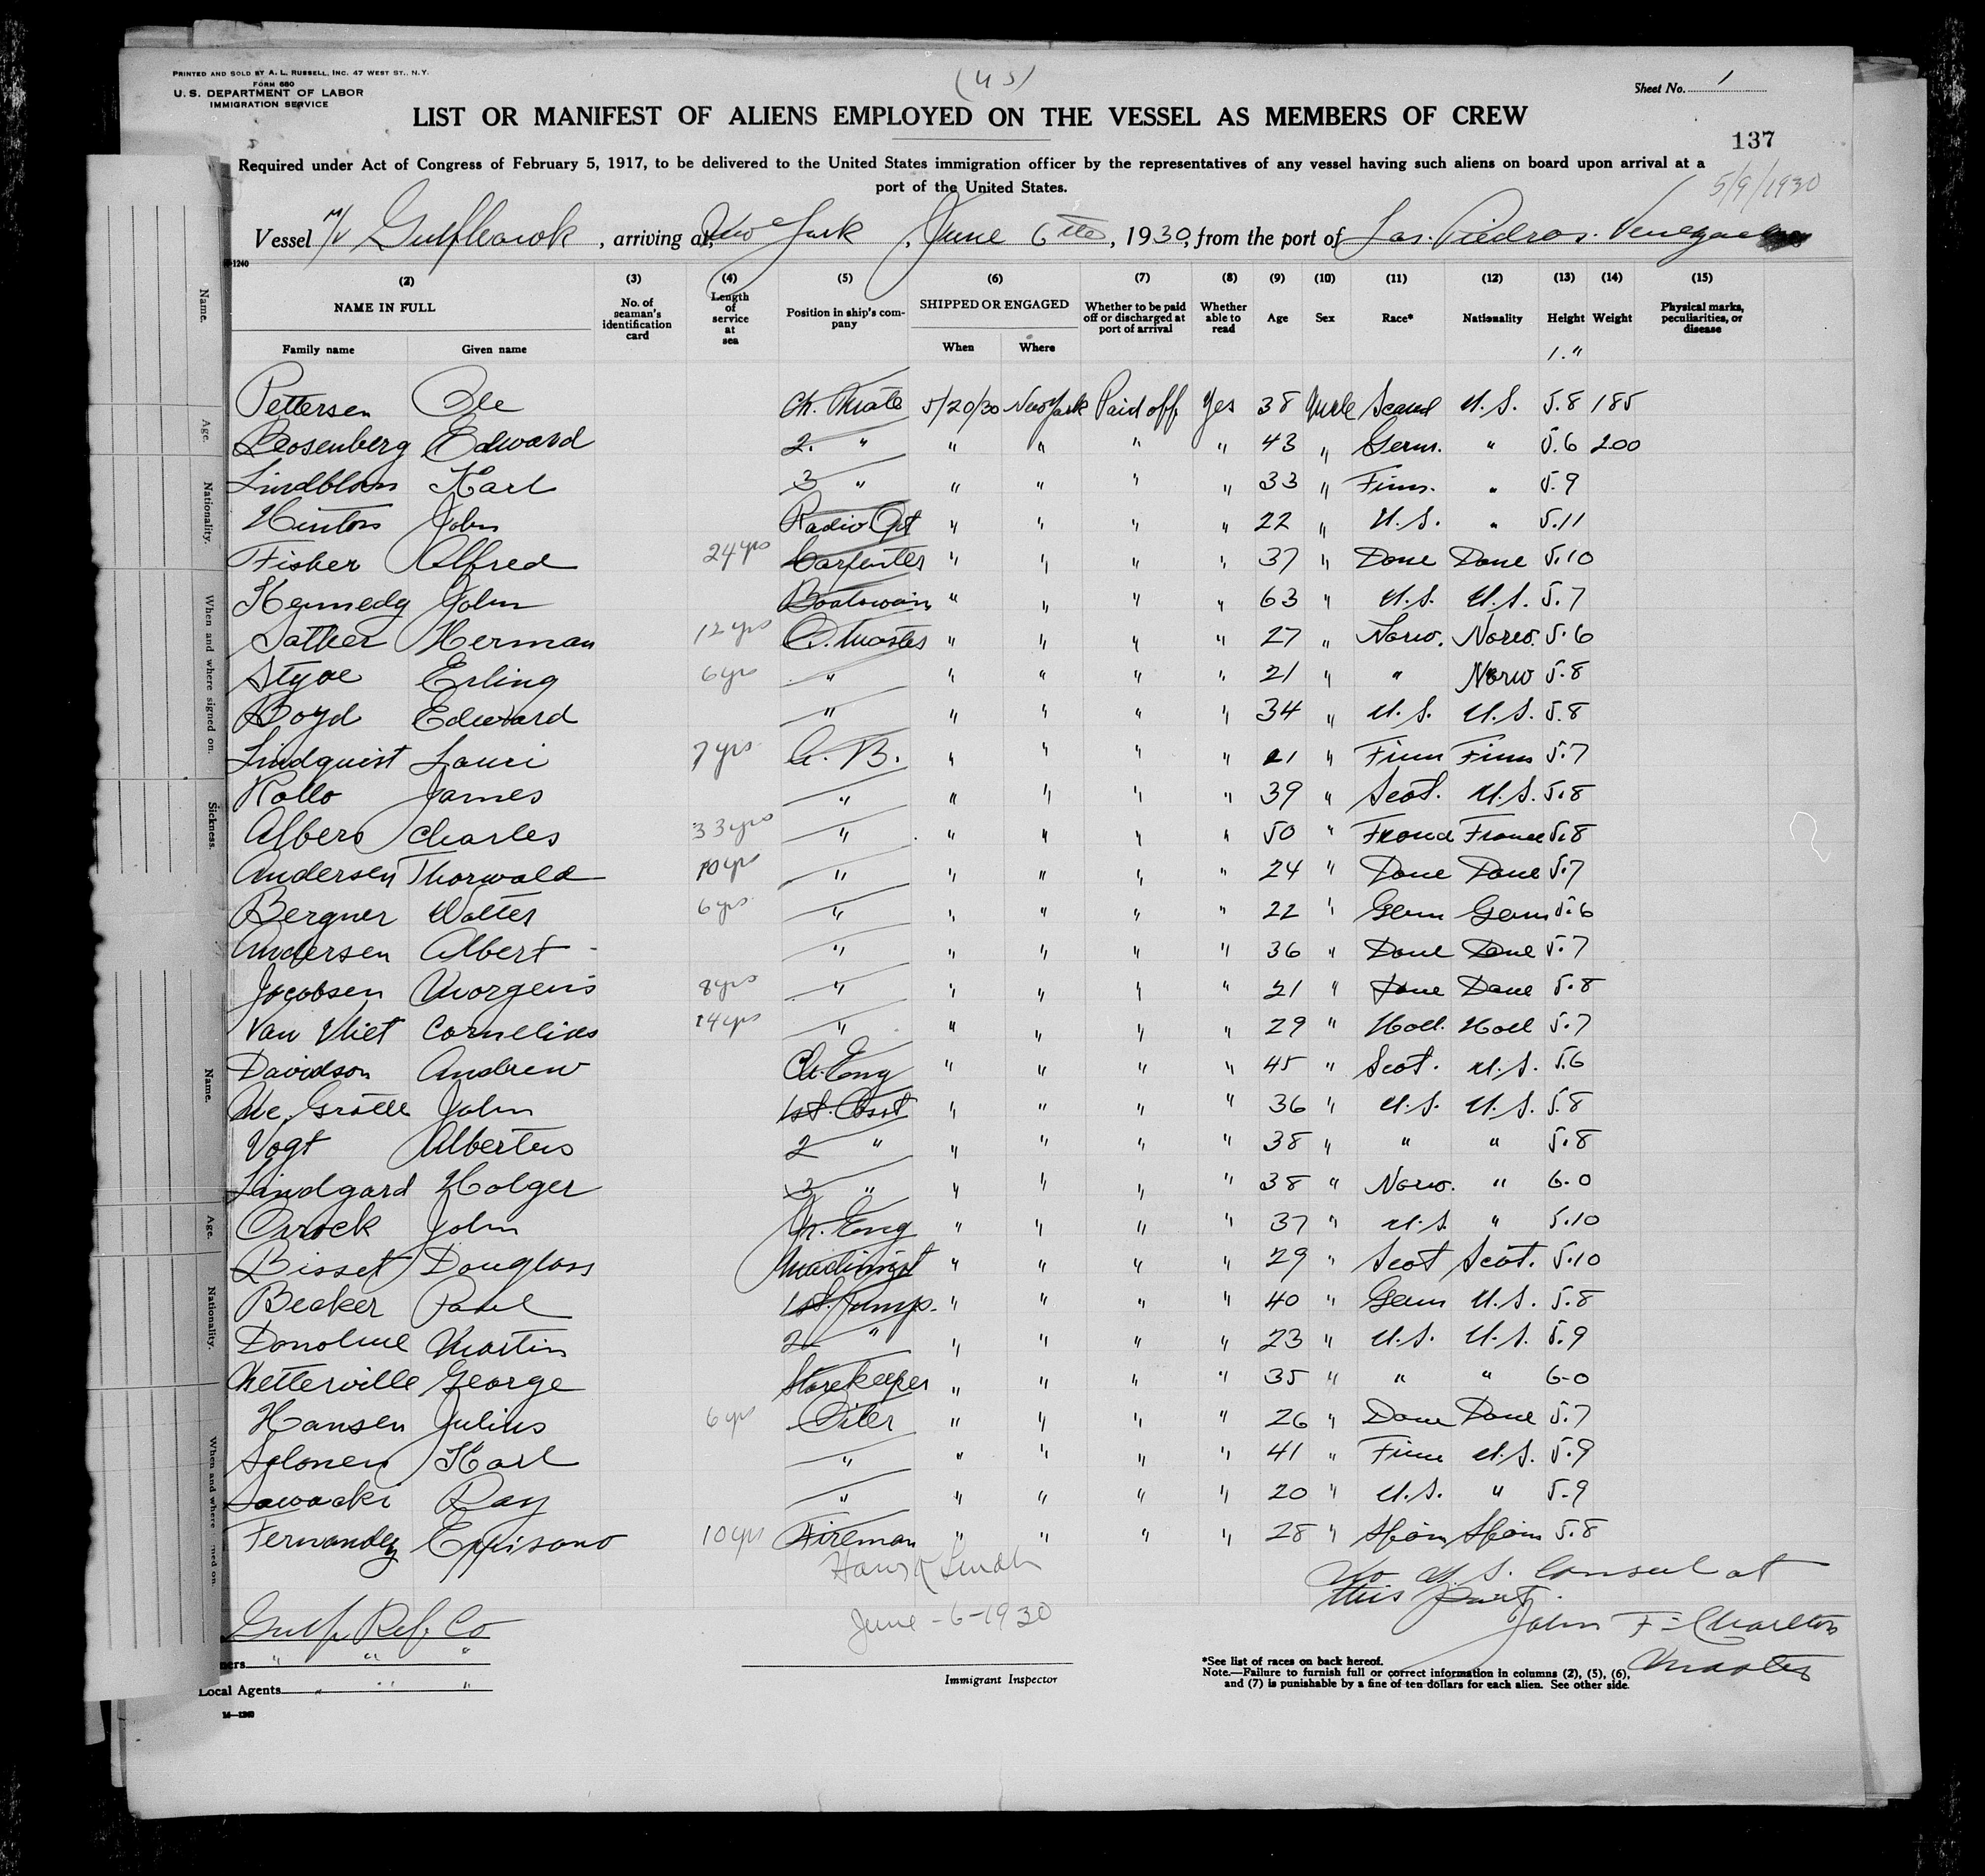 PRINTED AND SOLD BY A. L. RUSSELL, INC. 47 WEST ST., N.Y.
FORM 680
U. S. DEPARTMENT OF LABOR
IMMIGRATION SERVICE
(US)
Sheet No. 1
LIST OR MANIFEST OF ALIENS EMPLOYED ON THE VESSEL AS MEMBERS OF CREW
137
Required under Act of Congress of February 5, 1917, to be delivered to the United States immigration officer by the representatives of any vessel having such aliens on board upon arrival at a
port of the United States.
5/9/1930
Vessel M/V Gulfhawk, arriving at New York, June 6th, 1930, from the port of Las Piedras. Venezuela
(2) (3) (4) (5) (6) (7) (8) (9) (10) (11) (12) (13) (14) (15)
NAME IN FULL No. of seaman's identification card Length of service at sea Position in ship's company SHIPPED OR ENGAGED Whether to be paid off or discharged at port of arrival Whether able to read Age Sex Race* Nationality Height Weight Physical marks, peculiarities, or disease
Family name Given name When Where
Pettersen Ole Ch. Mate 5/20/30 New York Paid off Yes 38 Male Scand U.S. 5.8 185
Rosenberg Edward 2. " " " " " 43 " Germ. " 5.6 200
Lindblom Karl 3 " " " " " 33 " Finn. " 5.9
Hinton John Radio Opt " " " " 22 " U.S. " 5.11
Fisher Alfred 24 yrs Carpenter " " " " 37 " Dane Dane 5.10
Kennedy John Boatswain " " " " 63 " U.S. U.S. 5.7
Sather Herman 12 yrs Q. Master " " " " 27 " Norw. Norw. 5.6
Styve Erling 6 yrs " " " " " 21 " " Norw 5.8
Boyd Edward " " " " " 34 " U.S. U.S. 5.8
Lindquist Lauri 7 yrs. A. B. " " " " 21 " Finn Finn 5.7
Rollo James " " " " " 39 " Scot. U.S. 5.8
Albers Charles 33 yrs " " " " " 50 " France 5.8
Andersen Thorwald 10 yrs " " " " " 24 " Dane Dane 5.7
Bergner Walter 6 yrs. " " " " " 22 " Germ Germ 5.6
Andersen Albert " " " " " 36 " Dane Dane 5.7
Jacobsen Morgens 8 yrs " " " " " 21 " Dane Dane 5.8
Van Vliet Cornelius 14 yrs " " " " " 29 " Holl. Holl 5.7
Davidson Andrew Ch. Eng " " " " 45 " Scot. U.S. 5.6
John 1st. Asst " " " " 36 " U.S. U.S. 5.8
Vogt Albertus 2 " " " " " 38 " " " 5.8
Lindgard Holger 3 " " " " " 38 " Norw. " 6-0
Orrock John Eng " " " " 37 " U.S. " 5.10
Bisset Douglass Machinist " " " " 29 " Scot Scot. 5.10
Becker Paul 1st. Pump. " " " " 40 " Germ U.S. 5.8
Donohue Martin 2 " " " " " 23 " U.S. U.S. 5.9
Netterville George Storekeeper " " " " 35 " " " 6-0
Hansen Julius 6 yrs Oiler " " " " 26 " Dane Dane 5.7
Salonen Karl " " " " " 41 " Finn U.S. 5.9
Sawacki Ray " " " " " 20 " U.S. " 5.9
Fernandez 10 yrs Fireman " " " " 28 " Spain Spain 5.8
No U. S. Consul at
this port.
Gulf Ref. Co
June-6-1930
John F. Charlton
Master
" " "
Local Agents " " "
Immigrant Inspector
*See list of races on back hereof.
Note.—Failure to furnish full or correct information in columns (2), (5), (6),
and (7) is punishable by a fine of ten dollars for each alien. See other side.
Name.
Age.
Nationality.
When and where signed on.
Sickness.
Name.
Age.
Nationality.
When and where